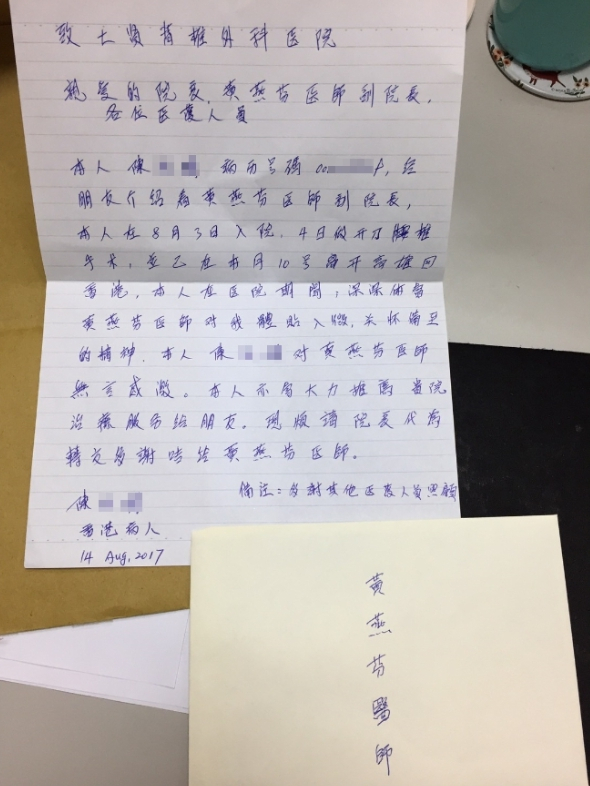 致士贤脊椎外科医院
親爱的院長，黄燕芬医師副院長，
各位医護人員
本人陳 病历号碼00 ，经
朋友介绍看黄燕芬医師副院長，
本人在8月3日入院，4日做开刀腰椎
手术，並已在本月10号离开高雄回
香港，本人在医院期間，深深体会
黄燕芬医師对我體貼入微，关怀備至
的精神，本人陳 对黄燕芬医師
無言感激。本人亦會大力推薦貴院
治療服务给朋友。现煩請院長代為
轉交多謝咭给黄燕芬医師。
陳
备注：多謝其他医護人員照顧
香港病人
14 Aug, 2017
黃燕芬醫師